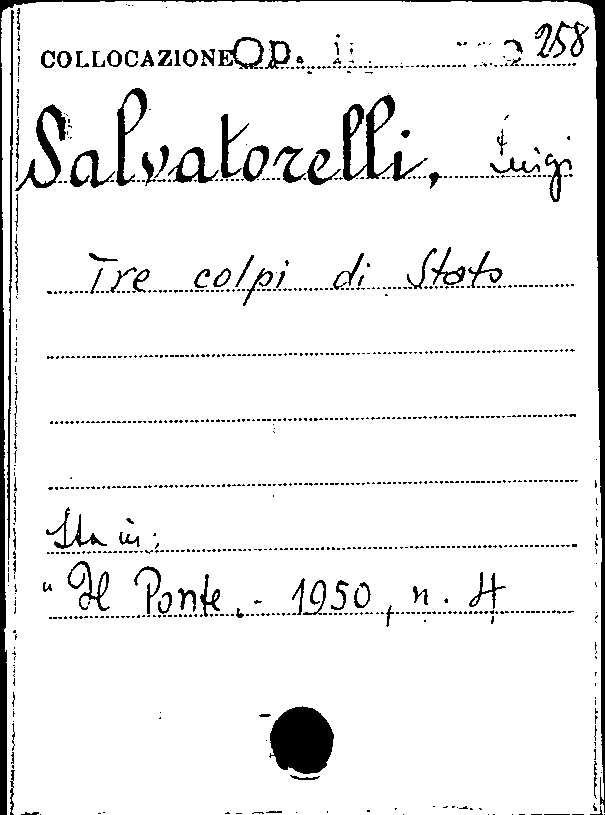 COLLOCAZIONE OP. 258
Salvatorelli, Luigi
Tre colpi di Stato
Sta in:
" Il Ponte.- 1950, n. 4